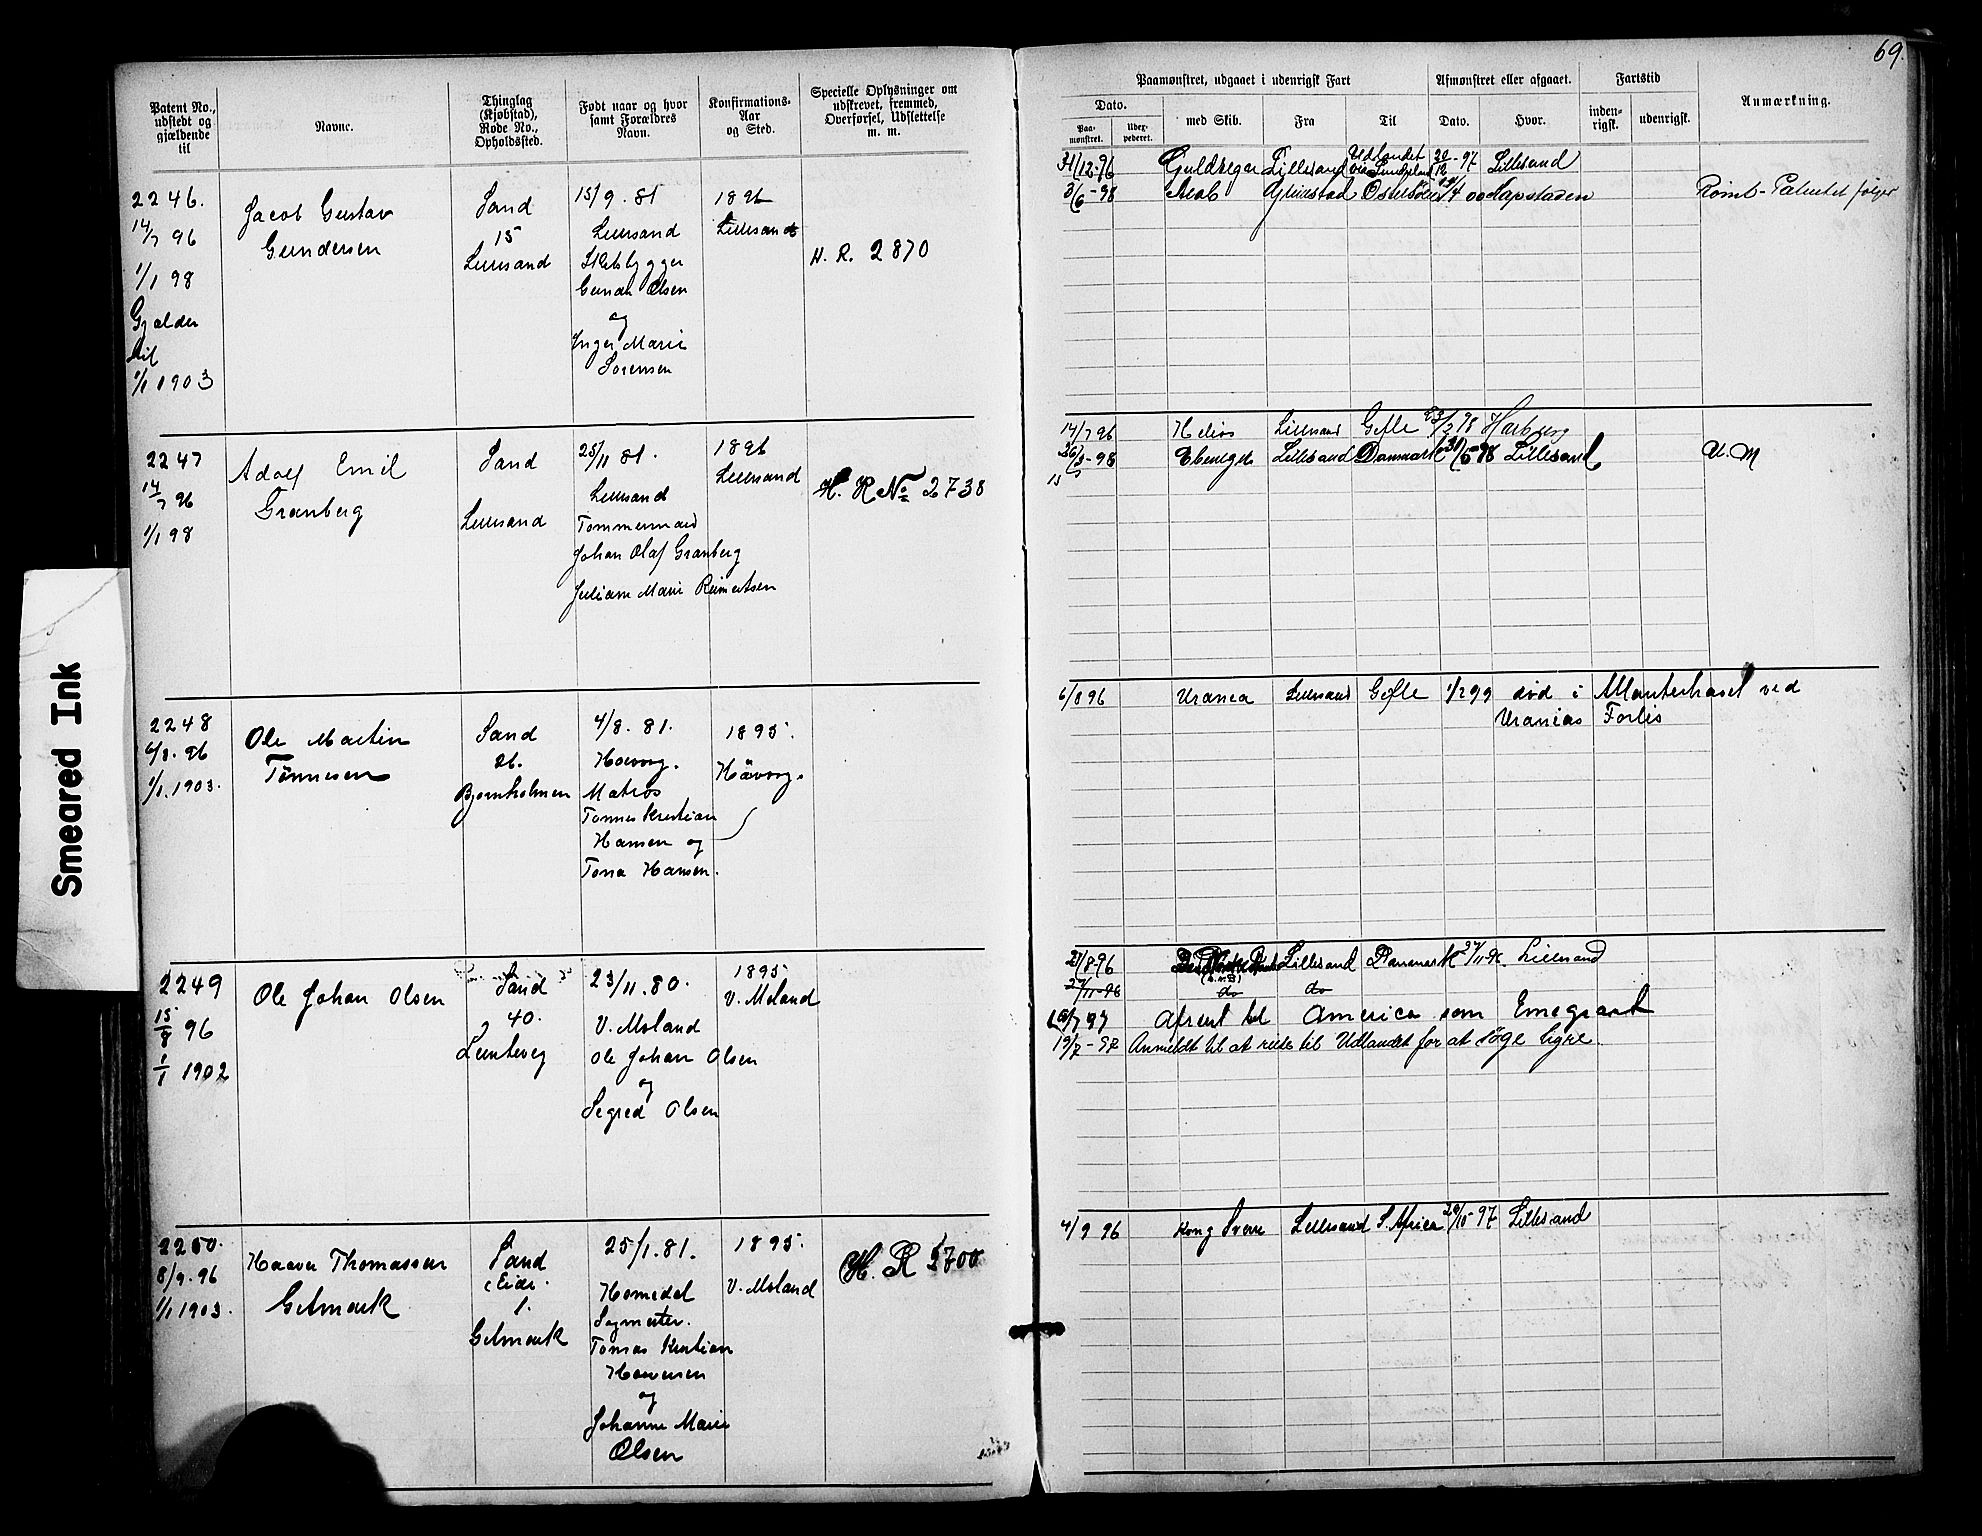 69.
Patent No., udstedt og gjældende til
Navne.
Thinglag (Kjøbstad), Rode No., Opholdssted.
Født naar og hvor samt Forældres Navn.
Konfirmations-Aar og Sted.
Specielle Oplysninger om udskrevet, fremmed, Overførsel, Udslettelse m. m.
Paamønstret, udgaaet i udenrigsk Fart
Afmønstret eller afgaaet.
Fartstid
Anmærkning.
Dato.
Paa-mønstret.
Uder-pederet.
med Skib.
Fra
Til
Dato.
Hvor.
inden-rigsk.
udenrigsk.
2246.
14/7 96
1/1 98
Gjælder
til
1/1 1903
Jacob Gustav
Gundersen
Sand
15
Lillesand
15/9 . 81
Lillesand
Skibbygger
Gunder Olsen
og
Inger Marie
Sorensen
1896
Lillesand
H. R. 2870
31/12-96 Guldregn Lillesand Udlandet 97 Lillesand
3/6-98 Grimstad 4 00
Patentet følger
2247
14/7 96
1/1 98
Adolf Emil
Granberg
Sand
Lillesand
25/11 81.
Lillesand
Tømmermand
Johan Olaf Granberg
Juliane Marie Reimertsen
1896
Lillesand
H. R No 2738
14/7 96 Helios Lillesand Gefle 98 Harburg
26/3-98 Ebeneser Lillesand Danmark 98 Lillesand
U. M
2248
6/8. 96
1/1. 1903.
Ole Martin
Tønnesen
Sand
26.
Bjørnholmen
4/8. 81.
Høvaag.
Matros
Tønnes Kristian
Hansen og
Tona Hansen.
1895.
Høvaag.
6/8 96 Urania Lillesand Gefle 1/2 99 død i ved
Uranias Forlis
2249
15/8 96
1/1 1902
Ole Johan Olsen
Sand
40.
23/11. 80.
V. Moland
Ole Johan Olsen
og
Segred Olsen
1895
V. Moland
21/8-96 Lillesand Danmark 27/11-96 Lillesand
27/11-96 do do
7 97 Afreist til America som Emegrant
19/7-97 Anmeldt til at reise til Udlandet for at søge hyre.
2250.
8/9. 96
1/1 1903.
Haaver Thomassen
Gitmark
Sand
(Eide.
1.
Gitmark
25/1. 81.
Homedal
Sagmester.
Tomas Kristian
Haaversen
og
Johanne Marie
Olsen
1895.
V. Moland
H. R 2700
4/9 96 Kong Sverre Lillesand S. Africa 97 Lillesand
Smeared Ink